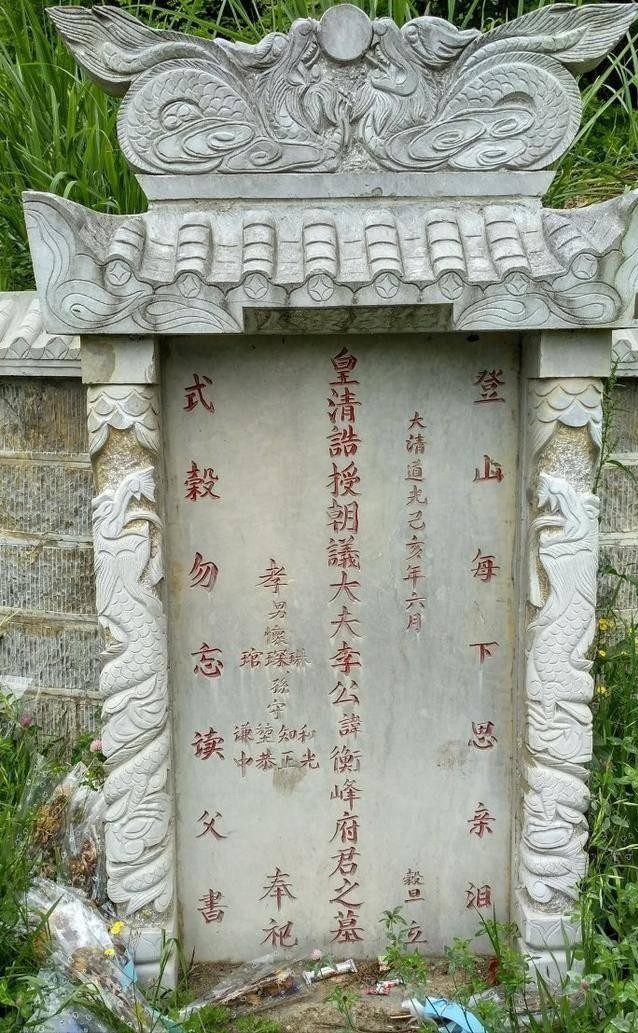 登山每下思亲泪
大清道光己亥年六月 穀旦立
皇清誥授朝議大夫李公諱衡峰府君之墓
孝男懷
琳琛琯
孫守
和知堃谦
光正恭中
奉祀
式穀勿忘读父書